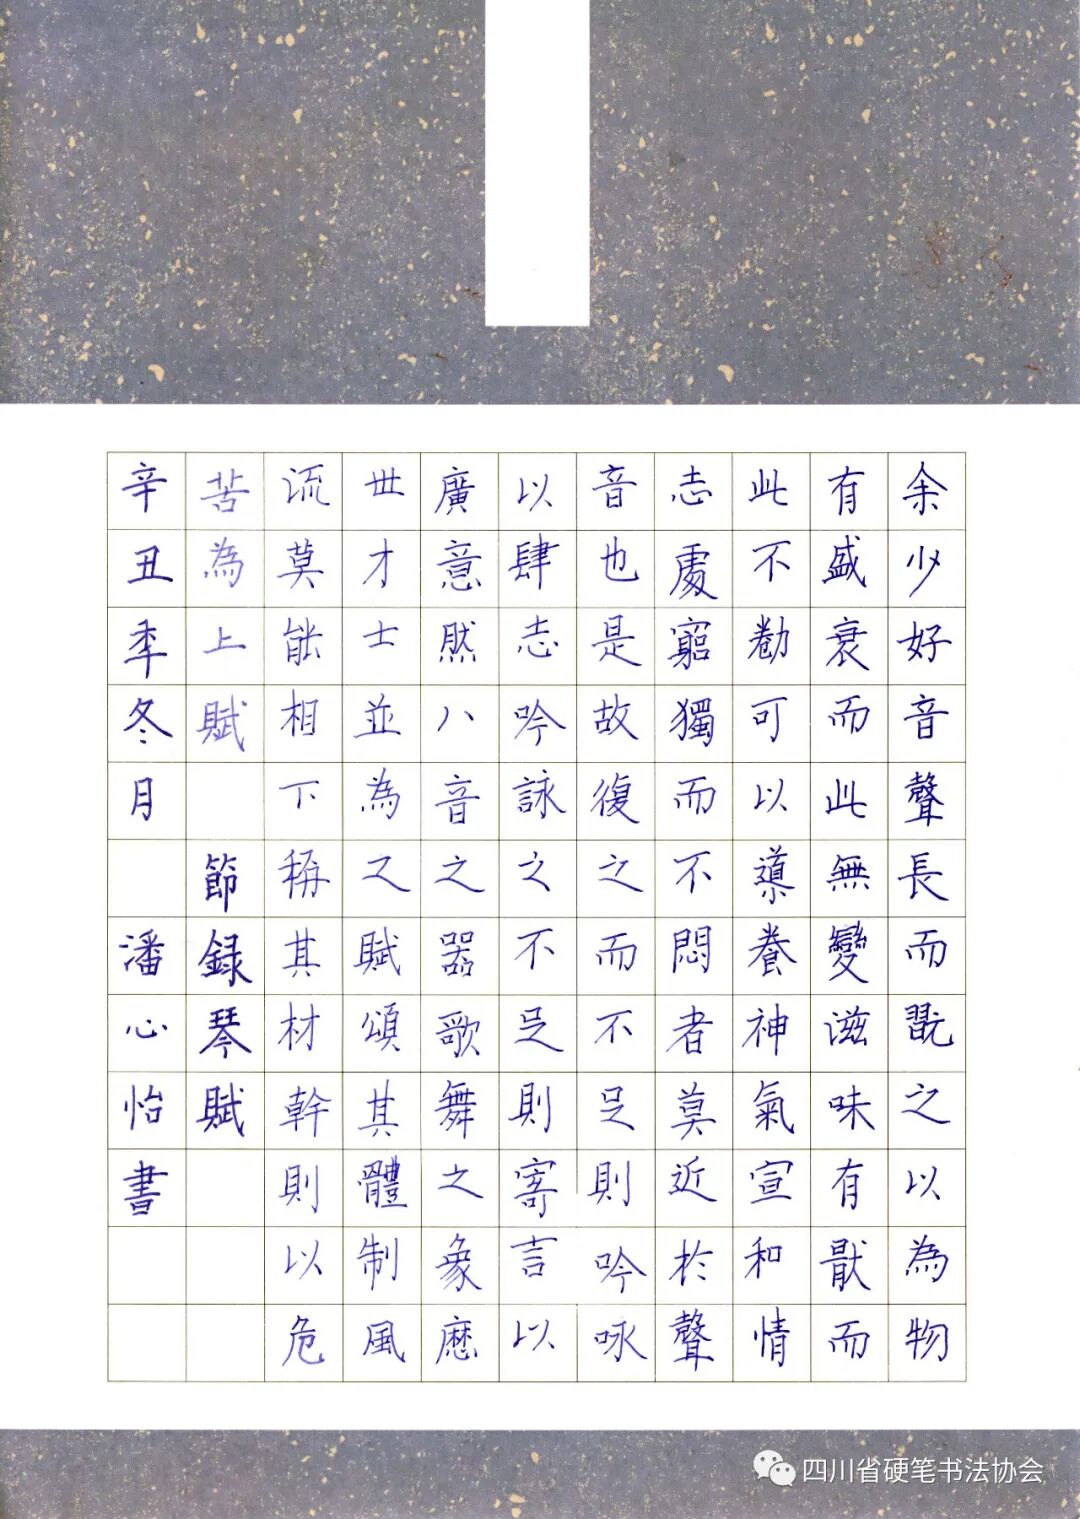 余少好音聲長而翫之以為物
有盛衰而此無變滋味有猒而
此不勌可以導養神氣宣和情
志處竆獨而不悶者莫近於聲
音也是故復之而不足則吟咏
以肆志吟詠之不足則寄言以
廣意然八音之器歌舞之象歷
世才士並為之賦頌其體制風
流莫能相下稱其材幹則以危
苦為上賦 節録琴賦
辛丑秊冬月 潘心怡書
四川省硬笔书法协会